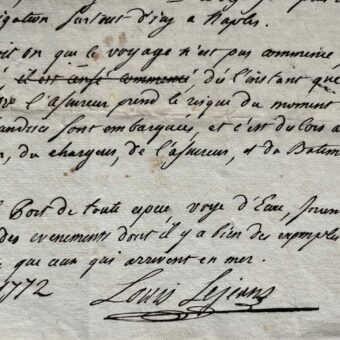 igation surtout d'icy a Naples.
oit on que le voyage n'est pas commencé,
il est censé commencé, dès l'instant que
l'assureur prend le risque du moment
andises sont embarquées, et c'est dès lors a
, du chargeur, de l'assureur, et du Batim
Port de toute espece, voye d'Eau,
des evenements dont il y a bien des exemples
que ceux qui arrivent en mer.
1772 Louis Lejeans